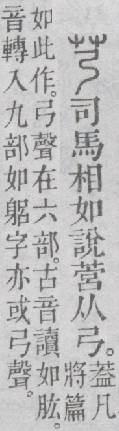 芎司馬相如說营从弓。葢凡
將篇
如此作。弓聲在六部。古音讀如肱。
音轉入九部如躳字亦或弓聲。